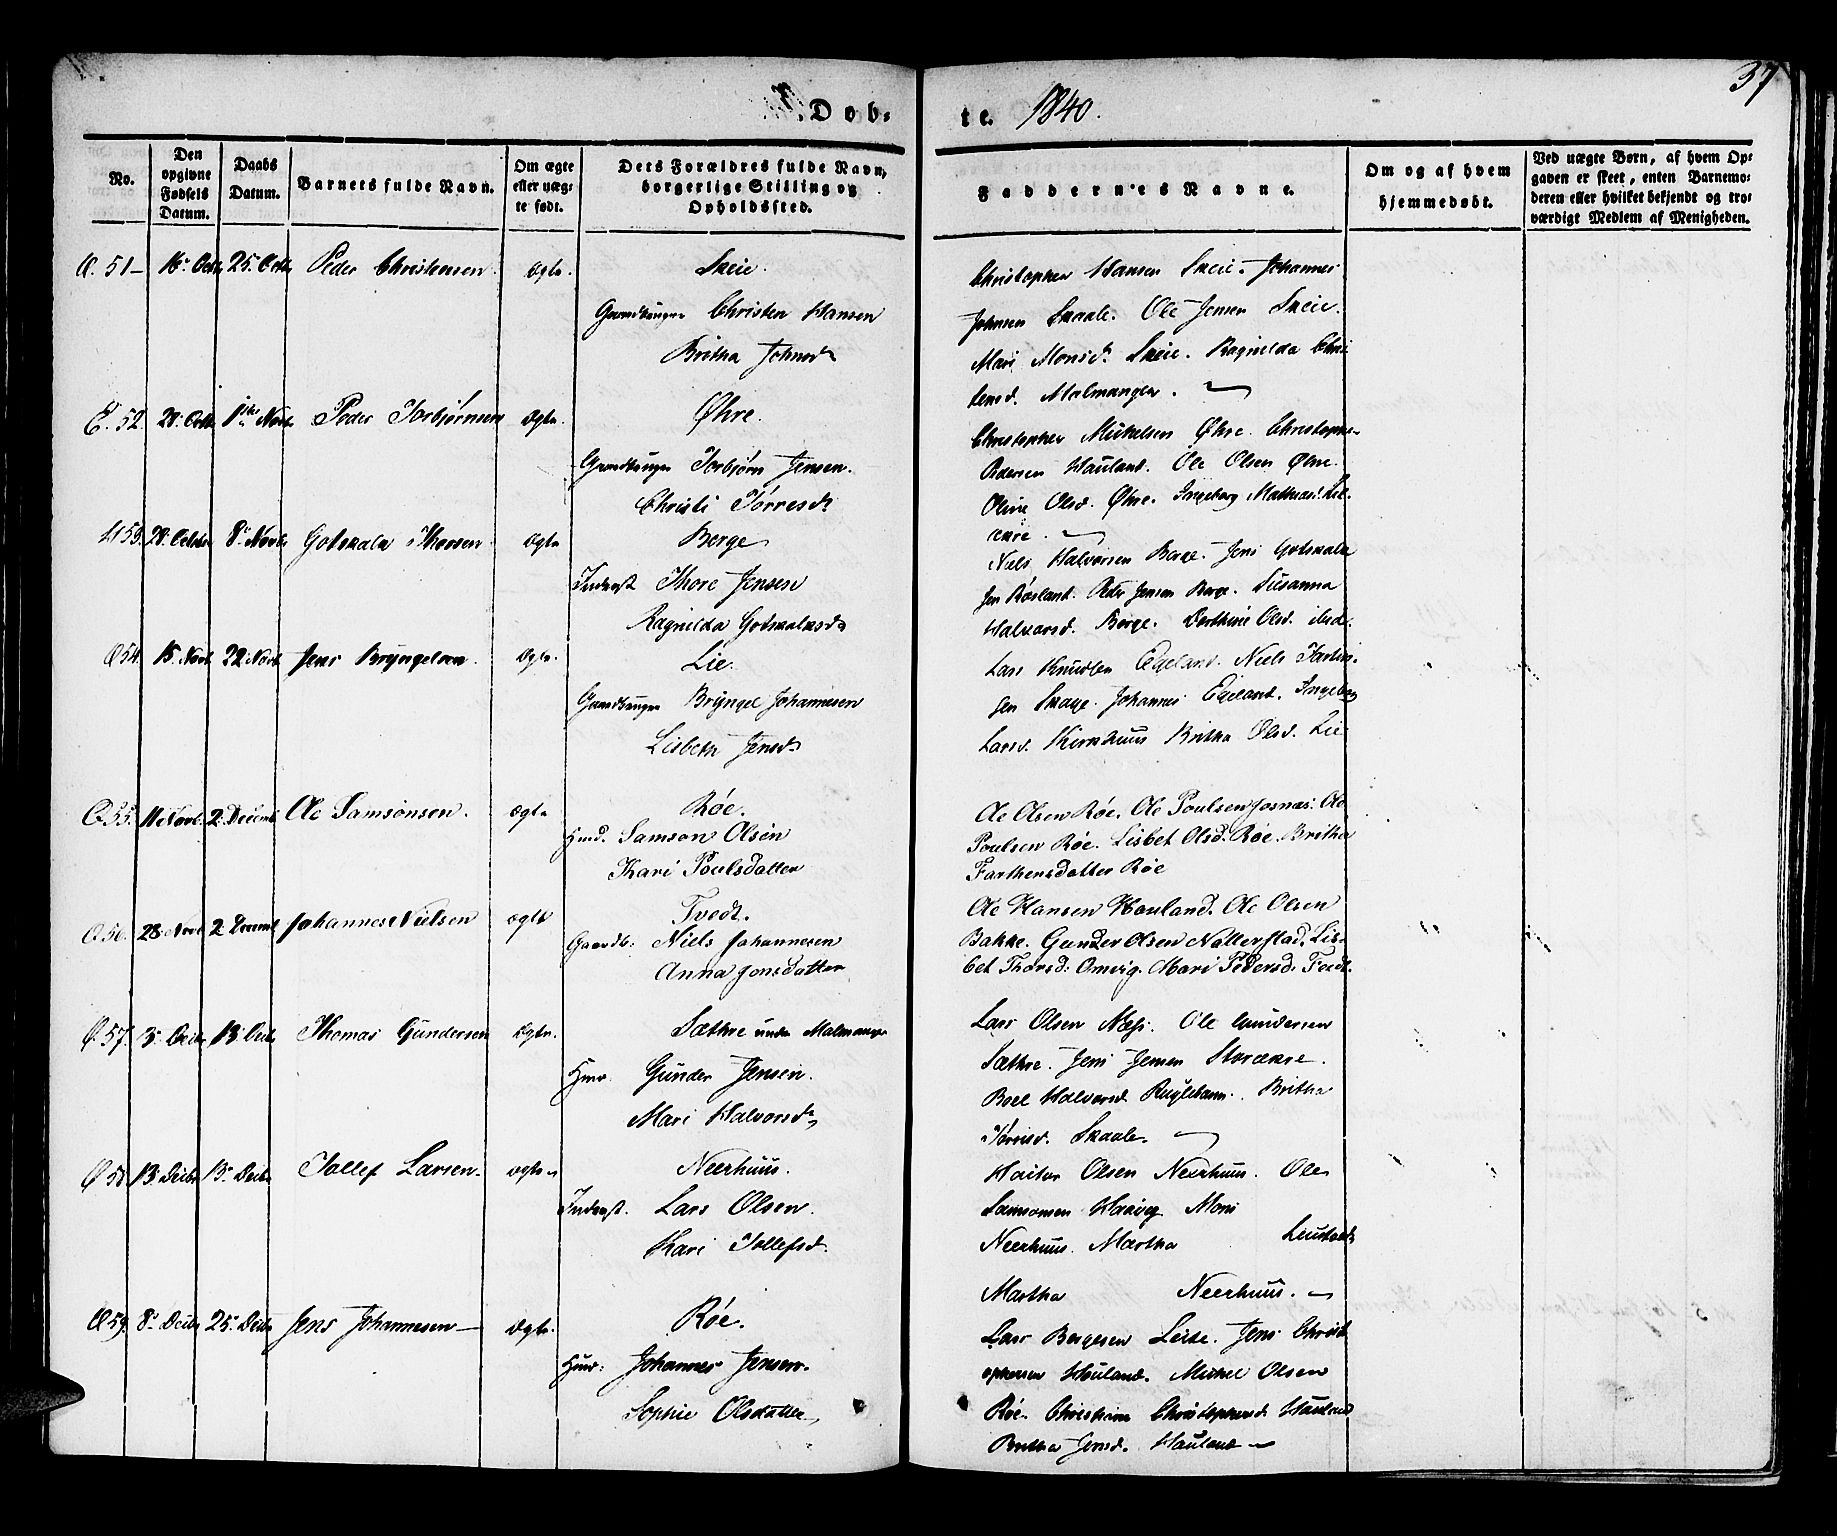 37
Døb-te. 1840.
No.
Den opgivne Fødsels Datum.
Daabs Datum.
Barnets fulde Navn.
Om ægte eller uæg-te født.
Dets Forældres fulde Navn, borgerlige Stilling og Opholdssted.
Faddernes Navne.
Om og af hvem hjemmedøbt.
Ved uægte Børn, af hvem Op-
gaven er skeet, enten Barnemo-
deren eller hvilket bekjendt og tro-
værdigt Medlem af Menigheden.
51 16 Octb 25 Octb Peder Christensen ægte Skeie.
Christen Hansen
Britha Johnsd
Christopher Hansen Skeie. Johannes
Johnsen Skaale. Ole Jensen Skeie.
Mari Monsd. Skeie. Ragnilda Chri
tensd. Malmanger.
52. 28 Octb 1ste Novb Peder Torbjørnsen ægte. Øhre.
Torbjørn Jensen.
Christi Tørresd
Christopher Mickelsen Øhre. Christophe-
Pedersen Hauland. Ole Olsen Øhre.
Oline Olsd. Øhre. Ingeborg
53. 28 October 8 Novb Gotskalk Thoresen ægte Berge
Inderst Thore Jensen
Ragnilda Gotskalksd
Niels Halvorsen Berge. Jens Gotskalk
sen Røsland. Peder Jensen Berge. Susanna
Halvorsd. Berge. Olsd. ibid.
54. 15 Novb 22 Novb Jens Bryngelsen ægte. Lie.
Bryngel Johannesen
Lisbeth Jensd
Lars Knudsen Egeland. Niels
sen Skage. Johannes Egeland. Ingeborg
Larsd. Kirkhuus Britha Olsd. Lie
55. 11 Novb. 2 Decemb Ole Samsonsen. ægte Røe.
Huusm. Samson Olsen
Kari Poulsdatter
Ole Olsen Røe. Ole Poulsen Josnæs. Ole
Poulsen Røe. Lisbet Olsd. Røe. Britha
Farthensdatter Røe
56. 28 Novb 2 Decemb Johannes Nielsen ægte Tvedt.
Gaardb: Niels Johannesen
Anna Jonsdatter
Ole Hansen Houland. Ole Olsen
Bakke. Gunder Olsen Natterstad. Lis-
bet Thorsd: Omvig. Mari Pedersd: Tvedt.
57. 3 Decbr 13 Decbr Thomas Gundersen ægte. Sæthre under Malmanger
Gunder Jensen.
Mari Halvorsd
Lars Olsen Næss. Ole Gundersen
Sæthre. Jens Jensen Storækre.
Boel Halvorsd. Britha
Tørrisd. Skaale.
58 13 Decbr 13 Decbr Tollef Larsen ægte Neerhuus.
Inderst. Lars Olsen.
Kari Tollefsd.
Haitor Olsen Neerhuus. Ole
Samsonsen Haavig Mons
Neerhuus. Martha
Martha Neerhuus.
59. 8 Decbr 25 Decbr Jens Johannesen ægte. Røe.
Johannes Jensen.
Sophie Olsdatter
Lars Børgesen Leite. Jens Christ
ophersen Hauland. Mickel Olsen
Røe. Christophersd. Hauland
Britha Jensd. Hauland